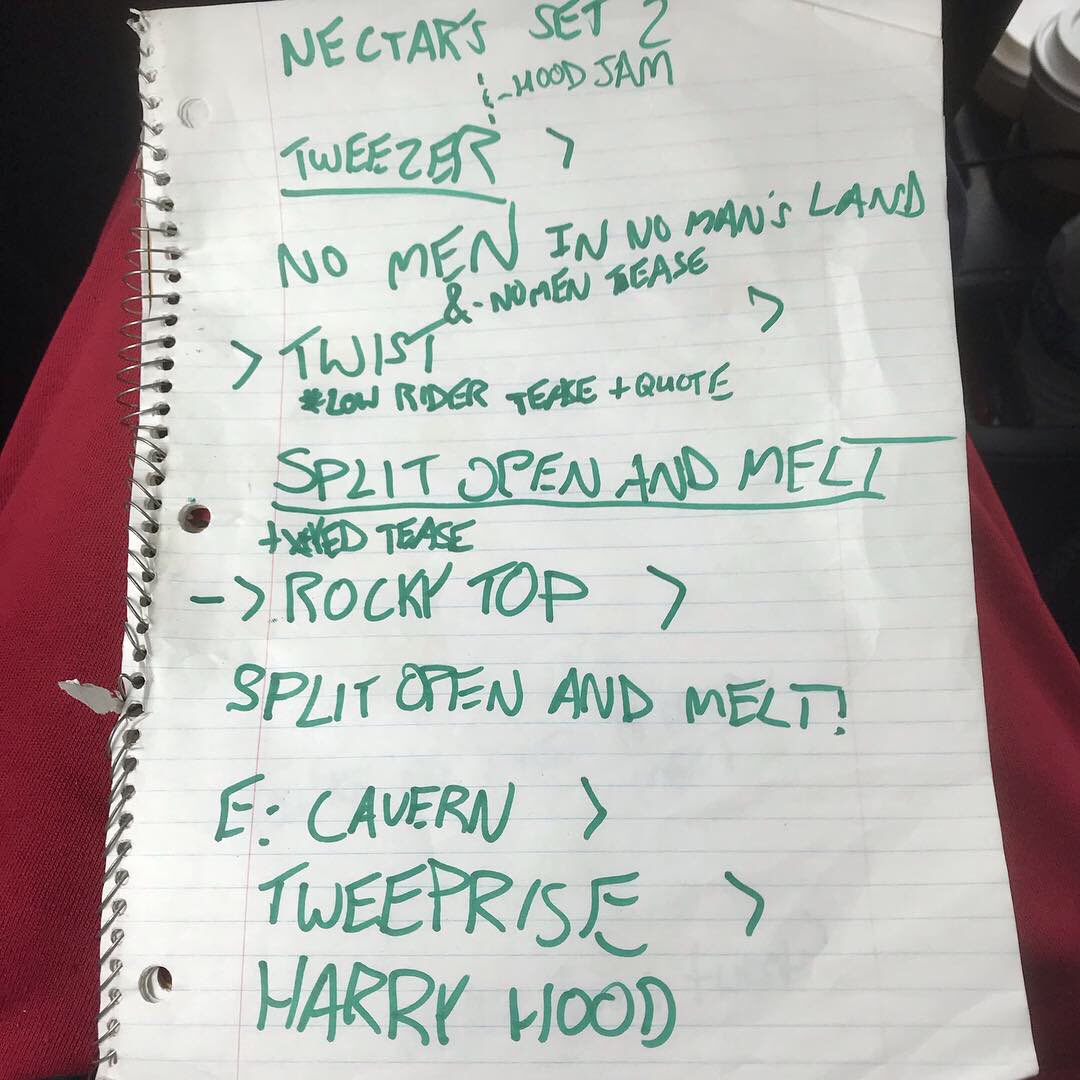 NECTAR'S SET 2
&-HOOD JAM
TWEEZER >
NO MEN IN NO MAN'S LAND
&-NO MEN TEASE
> TWIST >
*LOW RIDER TEASE + QUOTE
SPLIT OPEN AND MELT
TEASE
-> ROCKY TOP >
SPLIT OPEN AND MELT!
E: CAVERN >
TWEEPRISE >
HARRY HOOD